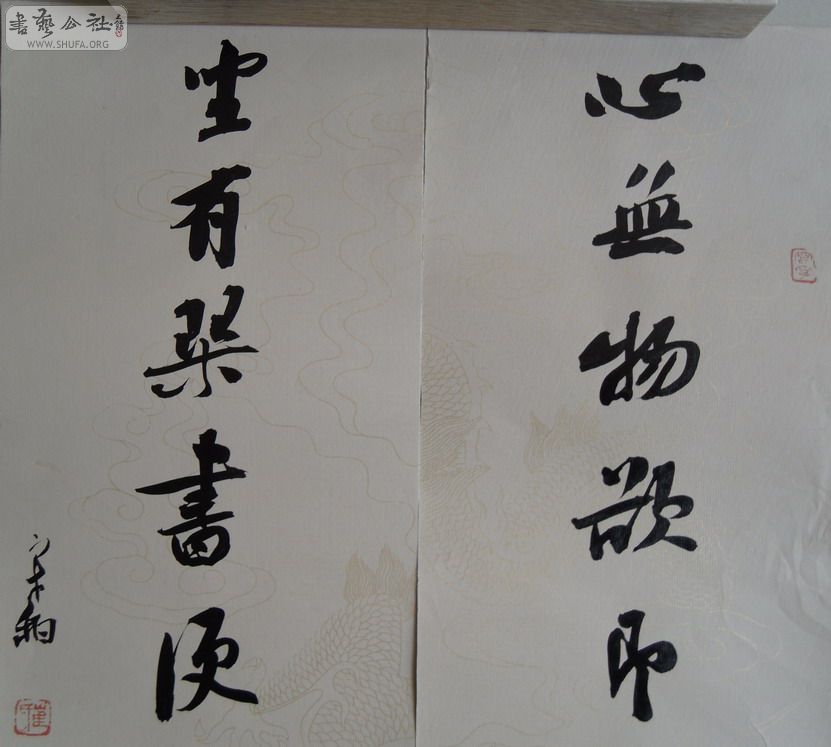 心無物欲即
坐有琹書便
書藝公社
WWW.SHUFA.ORG